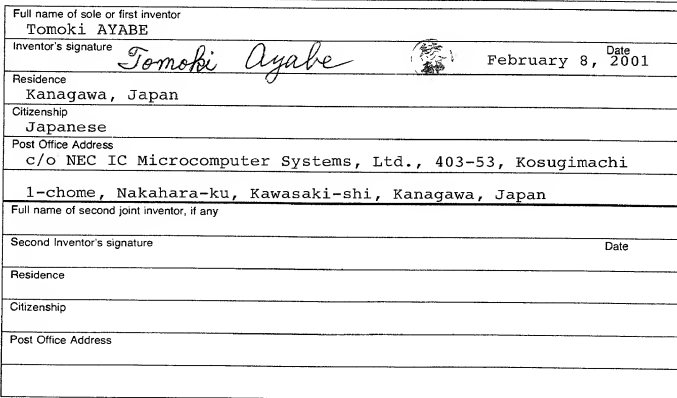 Full name of sole or first inventor
Tomoki AYABE
Inventor's signature Tomoki Ayabe Date
February 8, 2001
Residence
Kanagawa, Japan
Citizenship
Japanese
Post Office Address
c/o NEC IC Microcomputer Systems, Ltd., 403-53, Kosugimachi
1-chome, Nakahara-ku, Kawasaki-shi, Kanagawa, Japan
Full name of second joint inventor, if any
Second Inventor's signature Date
Residence
Citizenship
Post Office Address